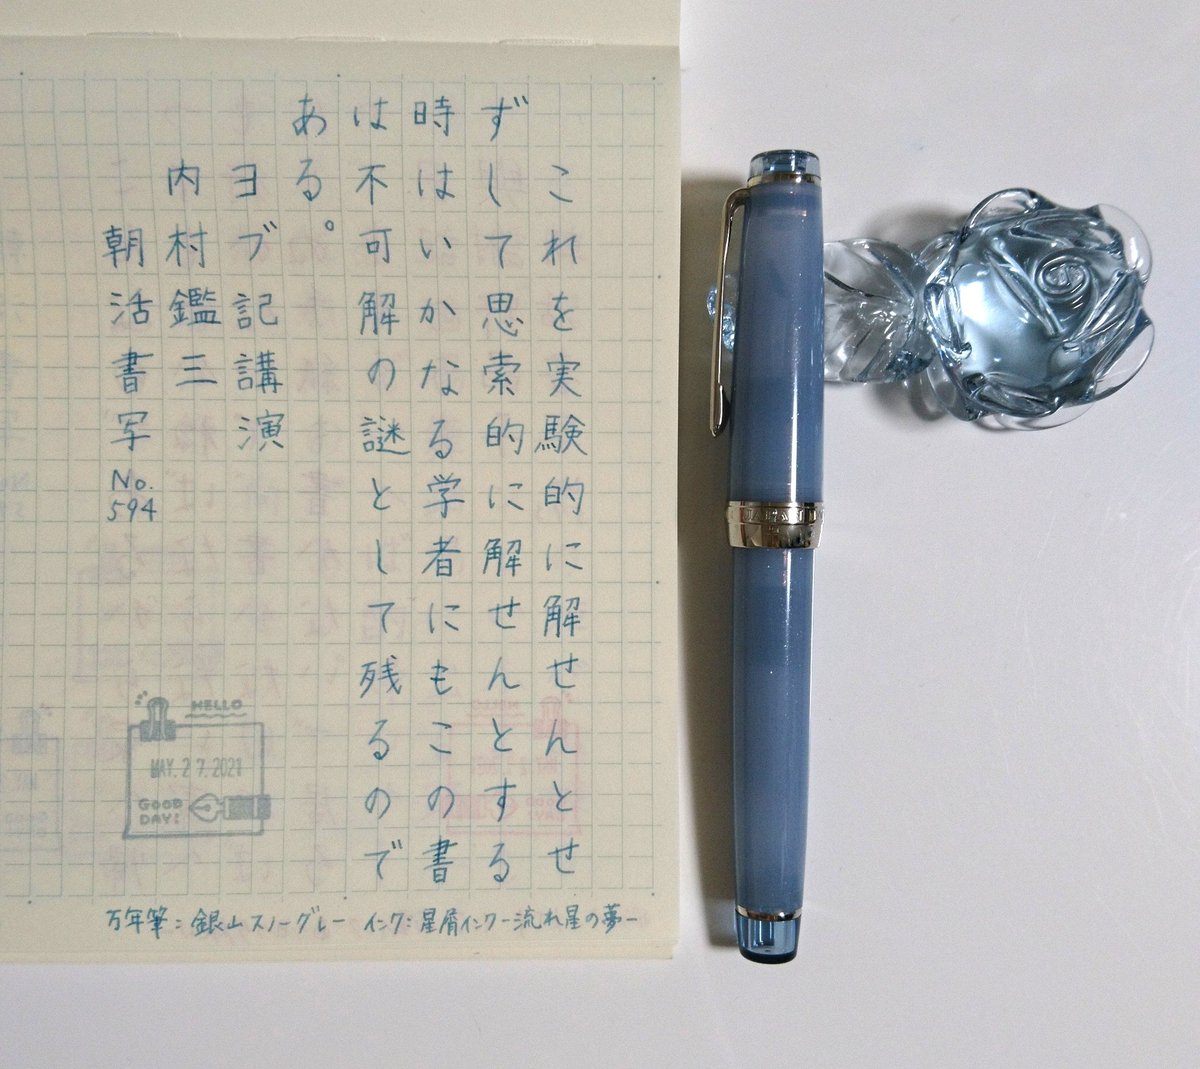 これを実験的に解せんとせ
ずして思索的に解せんとする
時はいかなる学者にもこの書
は不可解の謎として残るので
ある。
ヨブ記講演
内村鑑三
朝活書写
No.
594
HELLO
MAY. 27. 2021
GOOD
DAY!
万年筆：銀山スノーグレー インク：星屑インクー流れ星の夢ー